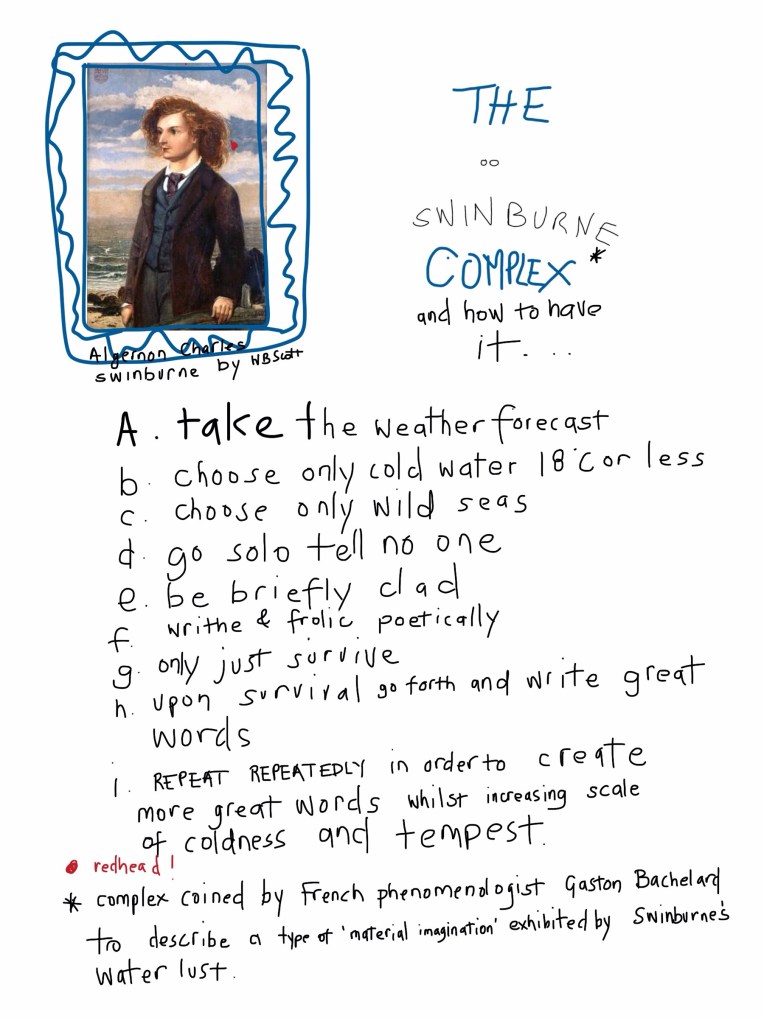 THE
SWINBURNE
COMPLEX *
and how to have
it. . .
Algernon Charles
swinburne by WBScott
A. take the weather forecast
b. choose only cold water 18°C or less
c. choose only wild seas
d. go solo tell no one
e. be briefly clad
f. writhe & frolic poetically
g. only just survive
h. upon survival go forth and write great
words
I. REPEAT REPEATEDLY in order to create
more great words whilst increasing scale
of coldness and tempest.
redhead!
* complex coined by French phenomenologist Gaston Bachelard
to describe a type of 'material imagination' exhibited by Swinburne's
water lust.